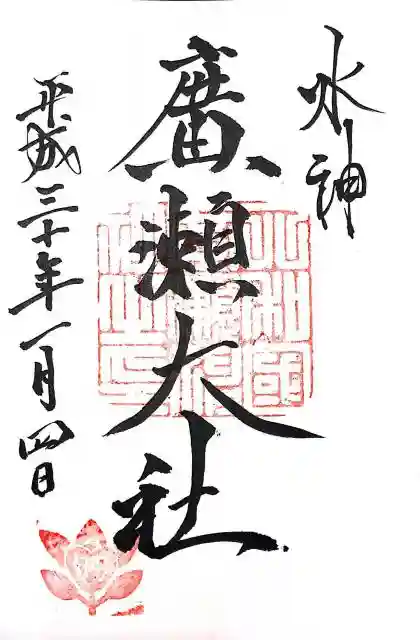 水神
廣瀬大社
平成三十年一月四日